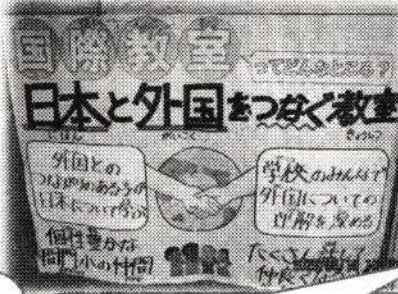 国際教室
ってどんなところ?
日本と外国をつなぐ教室
にほん がいこく きょうしつ
外国との
つながりのある子が
日本について学ぶ
学校のみんなで
外国についての
理解を深める
個性豊かな
間門小の仲間
たくさん
仲良く